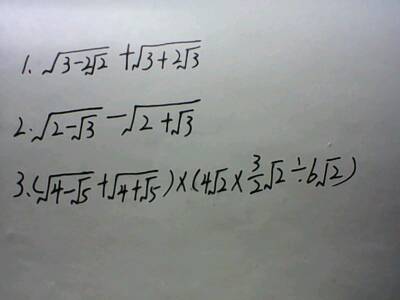 1. √(3-2√2) + √(3+2√3)
2. √(2-√3) - √(2+√3)
3. (√(4-√5) + √(4+√5)) × (4√2 × 3/2 √2 ÷ 6√2)